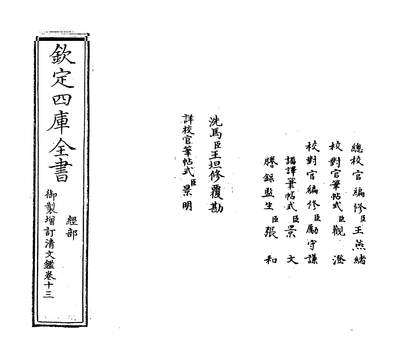 總校官編修臣王燕緒
校對官筆帖式臣觀澄
校對官編修臣勵守謙
繙譯筆帖式臣景文
謄錄監生臣張和
洗馬臣王坦修覆勘
詳校官筆帖式臣景明
欽定四庫全書
經部
御製增訂清文鑑卷十三